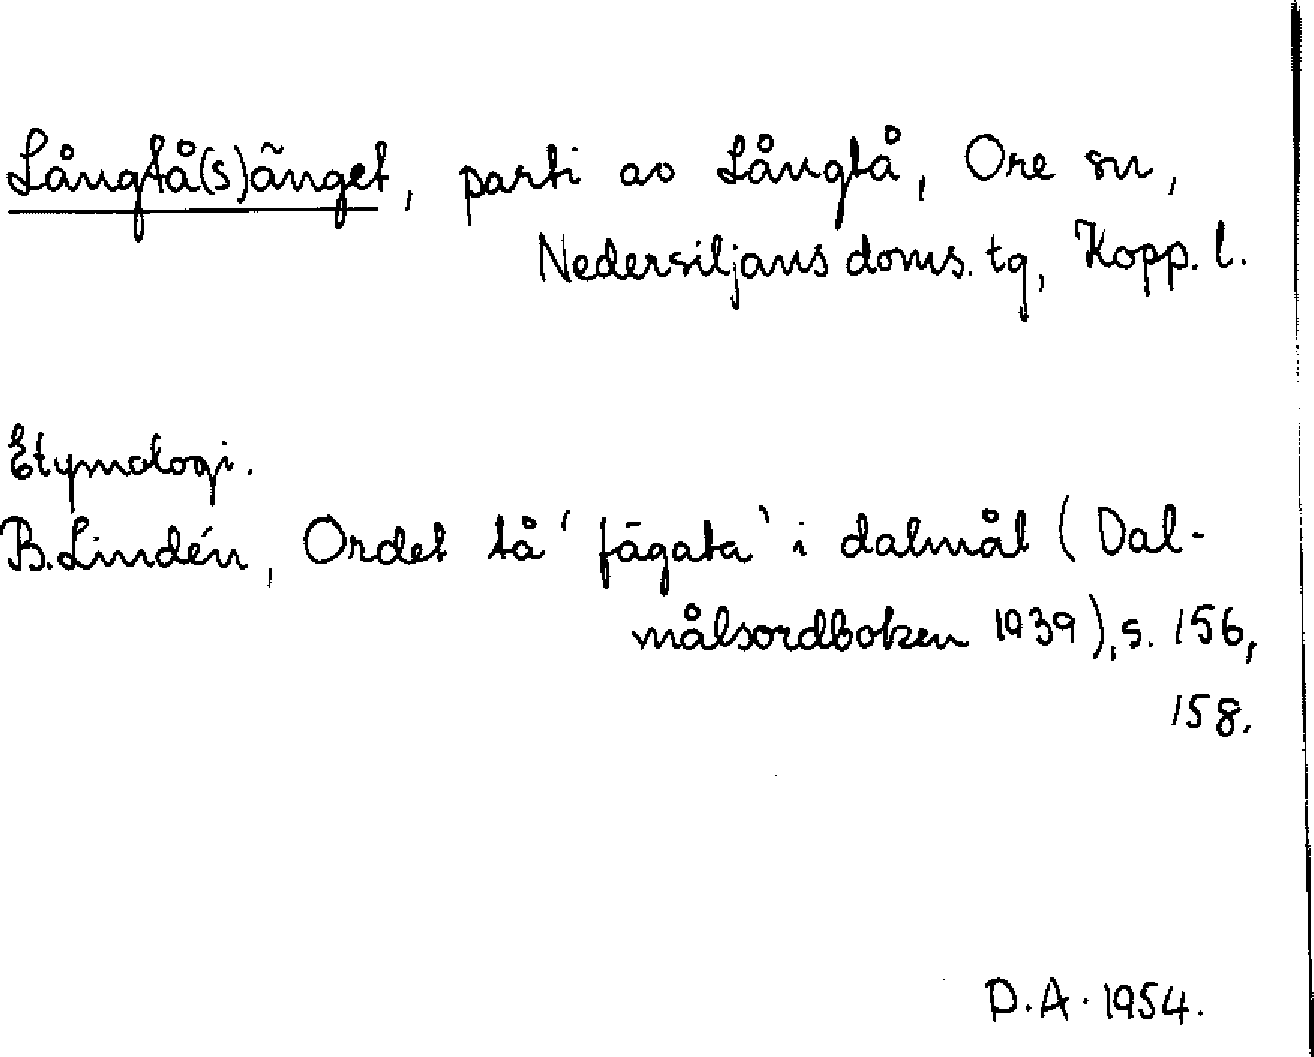 Långtå(s)änget, parti av Långtå, Ore sn,
Nedersiljans doms. tg, Kopp. l.
Etymologi.
B. Lindén, Ordet tå 'fägata' i dalmål (Dal-
målsordboken 1939), s. 156,
158.
D.A. 1954.